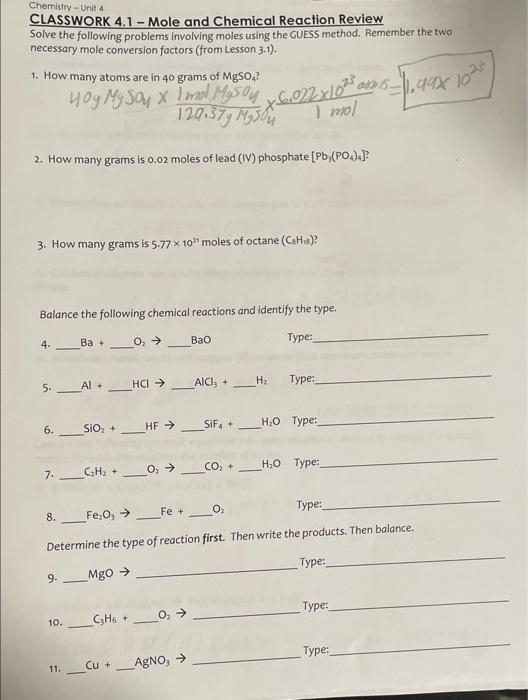 Chemistry – Unit 4
CLASSWORK 4.1 – Mole and Chemical Reaction Review
Solve the following problems involving moles using the GUESS method. Remember the two
necessary mole conversion factors (from Lesson 3.1).
1. How many atoms are in 40 grams of MgSO₄?
40g MgSO₄ x 1 mol MgSO₄ x 6.022x10²³ atoms = 1.99x 10²³
120.37g MgSO₄ 1 mol
2. How many grams is 0.02 moles of lead (IV) phosphate [Pb₃(PO₄)₄]?
3. How many grams is 5.77 x 10²¹ moles of octane (C₈H₁₈)?
Balance the following chemical reactions and identify the type.
4. ___Ba + ___O₂ → ___BaO Type:___
5. ___Al + ___HCl → ___AlCl₃ + ___H₂ Type:___
6. ___SiO₂ + ___HF → ___SiF₄ + ___H₂O Type:___
7. ___C₂H₂ + ___O₂ → ___CO₂ + ___H₂O Type:___
8. ___Fe₂O₃ → ___Fe + ___O₂ Type:___
Determine the type of reaction first. Then write the products. Then balance.
9. ___MgO → ___ Type:___
10. ___C₃H₆ + ___O₂ → ___ Type:___
11. ___Cu + ___AgNO₃ → ___ Type:___